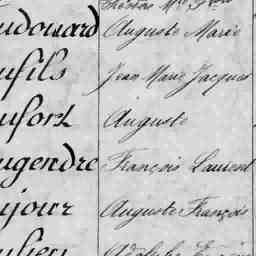 udouard Auguste Marie
ufils Jean Marie Jacques
ufort Auguste
ugendre François Laurent
ujour Auguste François